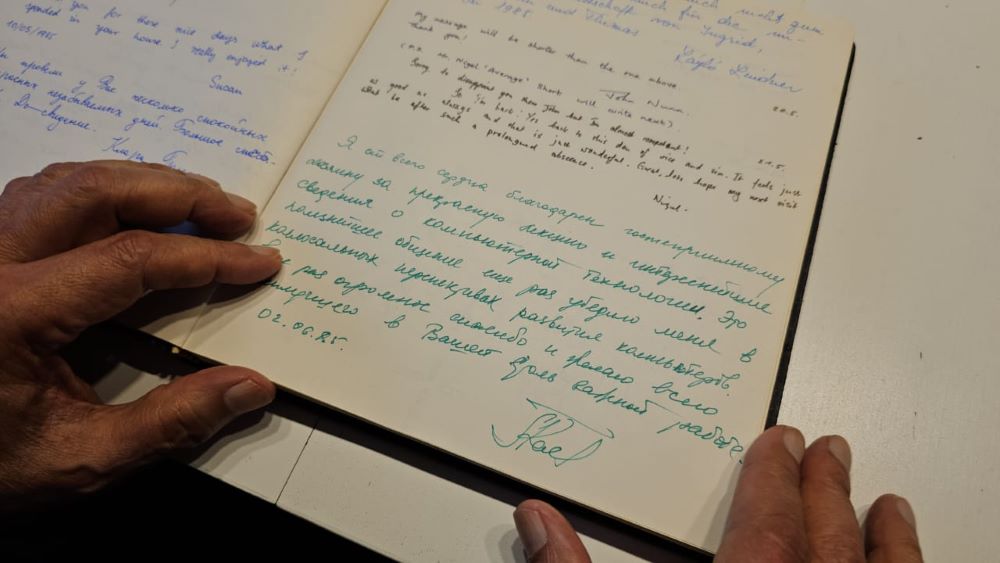 you for these nice days what I
spended in your house! I really enjoyed it!
10/05/1985
Susan
провели у Вас несколько спокойных
незабываемых дней. Большое спасибо.
До свидание.
nicht zum
für die
von Ingrid,
und Thomas
1985
my message will be shorter than the one above
Thank you!
John Nunn
20.5.
(P.S. no Nigel 'Average' Short will write next).
Sorry to disappoint you there John but I'm almost impotent!
21.5.
So I'm back! Yes back to this den of vice and sin. It feels just
as good as always and that is just wonderful. Great, less hope my next visit
won't be after such a prolonged absence.
Nigel.
Я от всего сердца благодарен гостеприимному
хозяину за прекрасную лекцию и интереснейшие
сведения о компьютерной технологии. Это
полезнейшее общение еще раз убедило меня в
колосальных перспективах развития компьютеров.
Еще раз огромное спасибо и желаю всего
наилучшего в Вашей столь важной работе.
02.06.85г.